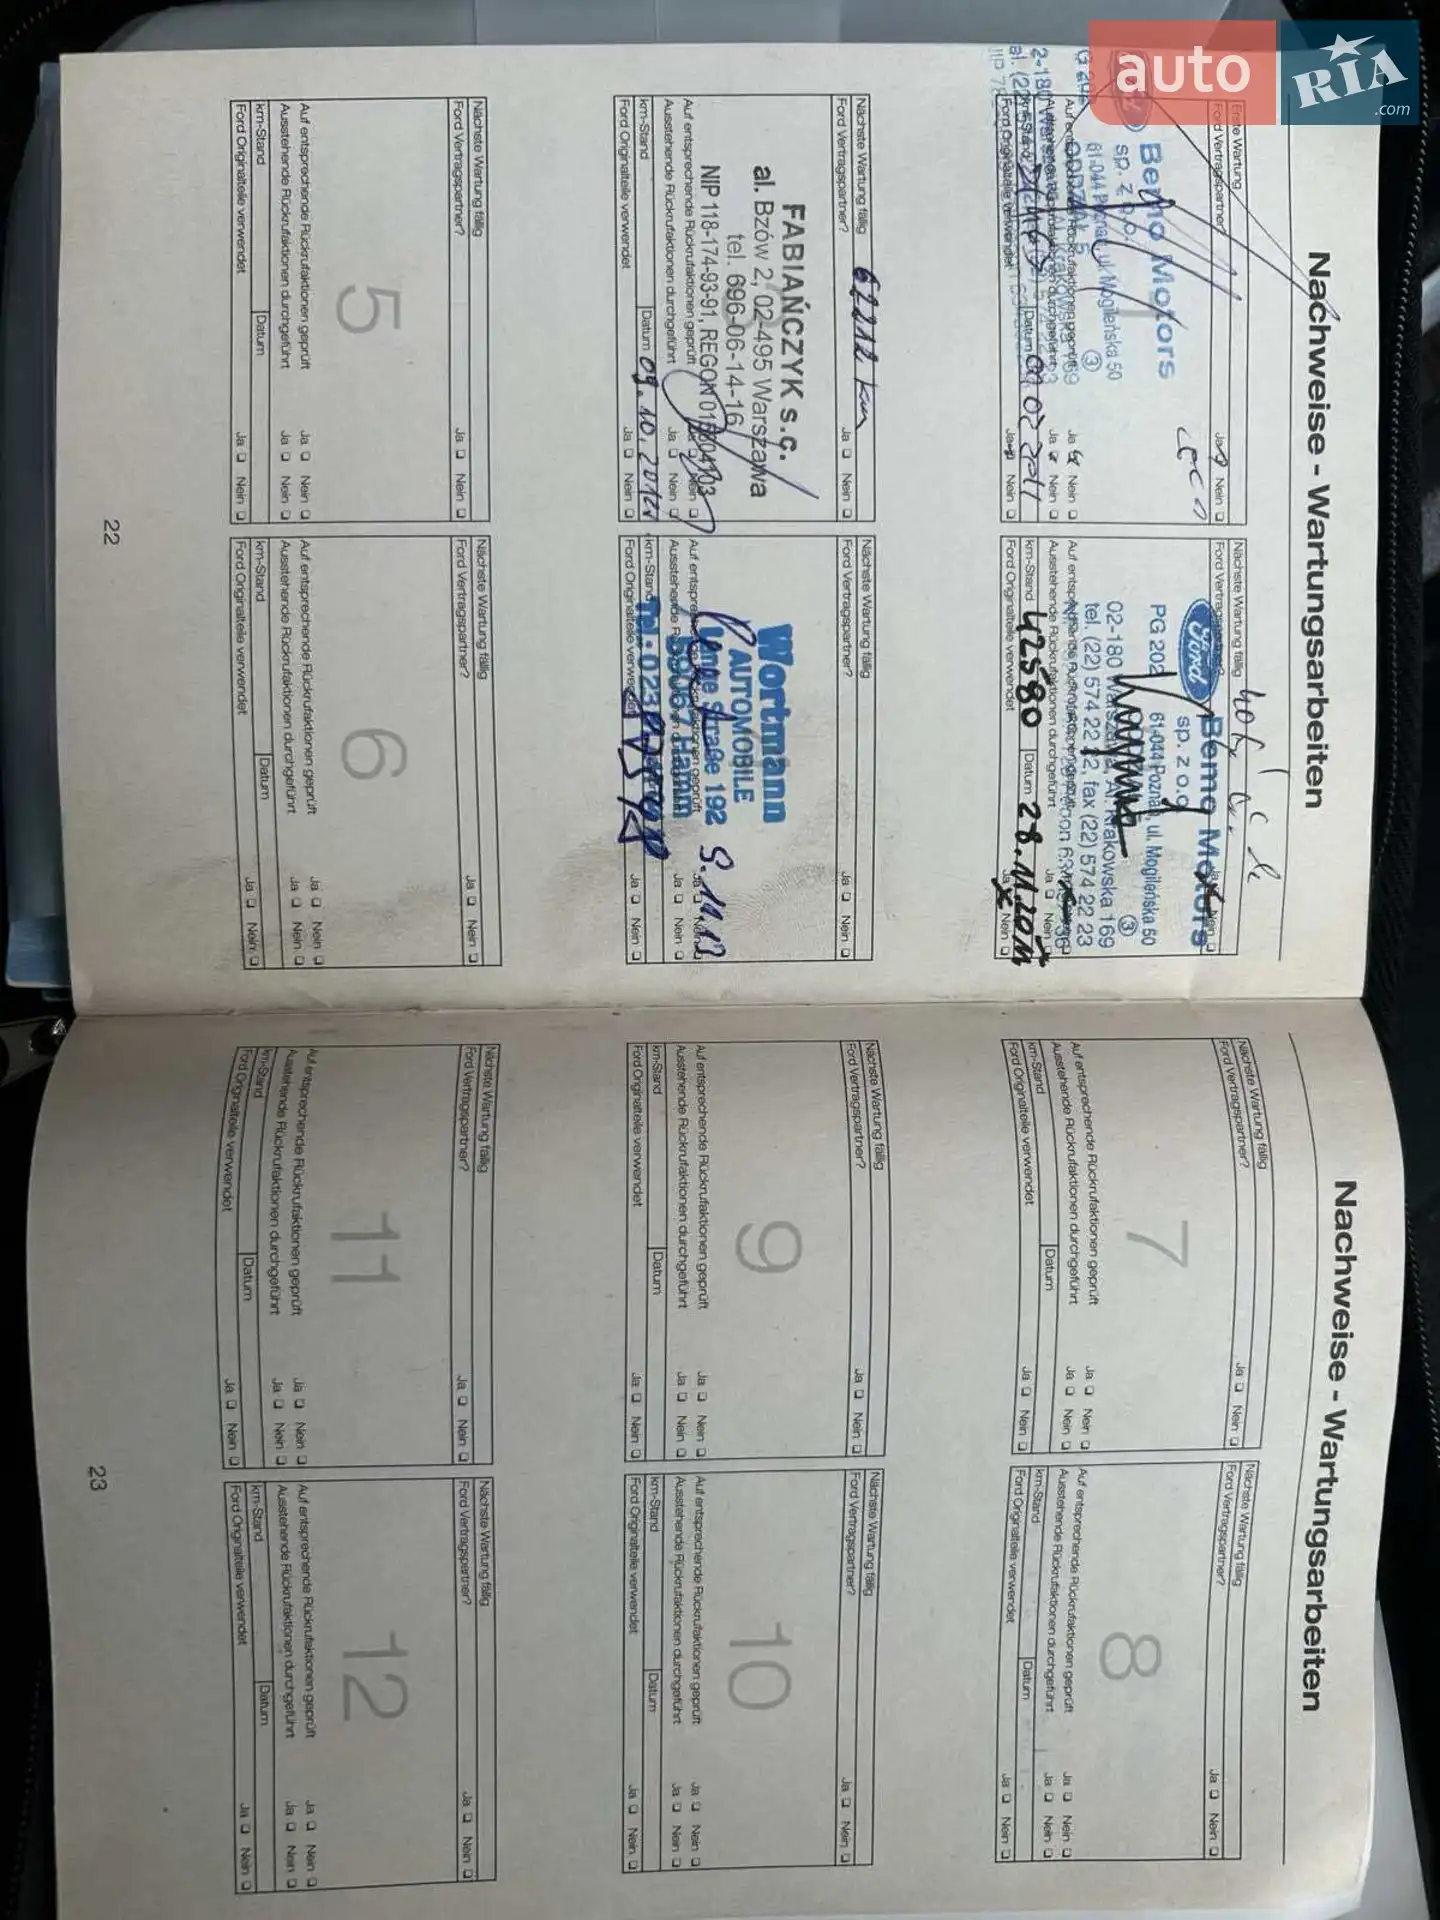 auto
RIA
.com
Nachweise - Wartungsarbeiten
Erste Wartung
Ford Vertragspartner?
Ja Nein
Bemo Motors
sp. z o.o.
61-044 Poznań, ul. Mogileńska 50
3
Auf entsprechende Rückrufaktionen geprüft
Ja Nein
Ausstehende Rückrufaktionen durchgeführt
Ja Nein
km-Stand
Datum
Ford Originalteile verwendet
Ja Nein
Nächste Wartung fällig
Ford Vertragspartner?
Ja Nein
Ford
Bemo Motors
sp. z o.o.
PG 202
61-044 Poznań, ul. Mogileńska 50
3
02-180 Warszawa, Al. Krakowska 169
tel. (22) 574 22 22, fax (22) 574 22 23
Auf entsprechende Rückrufaktionen geprüft
Ja Nein
Ausstehende Rückrufaktionen durchgeführt
Ja Nein
km-Stand 42580
Datum 28.11.2011
Ford Originalteile verwendet
Ja Nein
Nächste Wartung fällig 62212 km
Ford Vertragspartner?
Ja Nein
FABIAŃCZYK s.c.
al. Bzów 2, 02-495 Warszawa
tel. 696-06-14-16
NIP 118-174-93-91, REGON
Auf entsprechende Rückrufaktionen geprüft
Ja Nein
Ausstehende Rückrufaktionen durchgeführt
Ja Nein
km-Stand
Datum 09.10.2012
Ford Originalteile verwendet
Ja Nein
Nächste Wartung fällig
Ford Vertragspartner?
Ja Nein
Wortmann
AUTOMOBILE
Lange Straße 192
Hamm
Auf entsprechende Rückrufaktionen geprüft
Ja Nein
Ausstehende Rückrufaktionen durchgeführt
Ja Nein
km-Stand
Ford Originalteile verwendet
Ja Nein
Nächste Wartung fällig
Ford Vertragspartner?
Ja Nein
5
Auf entsprechende Rückrufaktionen geprüft
Ja Nein
Ausstehende Rückrufaktionen durchgeführt
Ja Nein
km-Stand
Datum
Ford Originalteile verwendet
Ja Nein
Nächste Wartung fällig
Ford Vertragspartner?
Ja Nein
6
Auf entsprechende Rückrufaktionen geprüft
Ja Nein
Ausstehende Rückrufaktionen durchgeführt
Ja Nein
km-Stand
Datum
Ford Originalteile verwendet
Ja Nein
22
Nachweise - Wartungsarbeiten
Nächste Wartung fällig
Ford Vertragspartner?
Ja Nein
7
Auf entsprechende Rückrufaktionen geprüft
Ja Nein
Ausstehende Rückrufaktionen durchgeführt
Ja Nein
km-Stand
Datum
Ford Originalteile verwendet
Ja Nein
Nächste Wartung fällig
Ford Vertragspartner?
Ja Nein
8
Auf entsprechende Rückrufaktionen geprüft
Ja Nein
Ausstehende Rückrufaktionen durchgeführt
Ja Nein
km-Stand
Datum
Ford Originalteile verwendet
Ja Nein
Nächste Wartung fällig
Ford Vertragspartner?
Ja Nein
9
Auf entsprechende Rückrufaktionen geprüft
Ja Nein
Ausstehende Rückrufaktionen durchgeführt
Ja Nein
km-Stand
Datum
Ford Originalteile verwendet
Ja Nein
Nächste Wartung fällig
Ford Vertragspartner?
Ja Nein
10
Auf entsprechende Rückrufaktionen geprüft
Ja Nein
Ausstehende Rückrufaktionen durchgeführt
Ja Nein
km-Stand
Datum
Ford Originalteile verwendet
Ja Nein
Nächste Wartung fällig
Ford Vertragspartner?
Ja Nein
11
Auf entsprechende Rückrufaktionen geprüft
Ja Nein
Ausstehende Rückrufaktionen durchgeführt
Ja Nein
km-Stand
Datum
Ford Originalteile verwendet
Ja Nein
Nächste Wartung fällig
Ford Vertragspartner?
Ja Nein
12
Auf entsprechende Rückrufaktionen geprüft
Ja Nein
Ausstehende Rückrufaktionen durchgeführt
Ja Nein
km-Stand
Datum
Ford Originalteile verwendet
Ja Nein
23